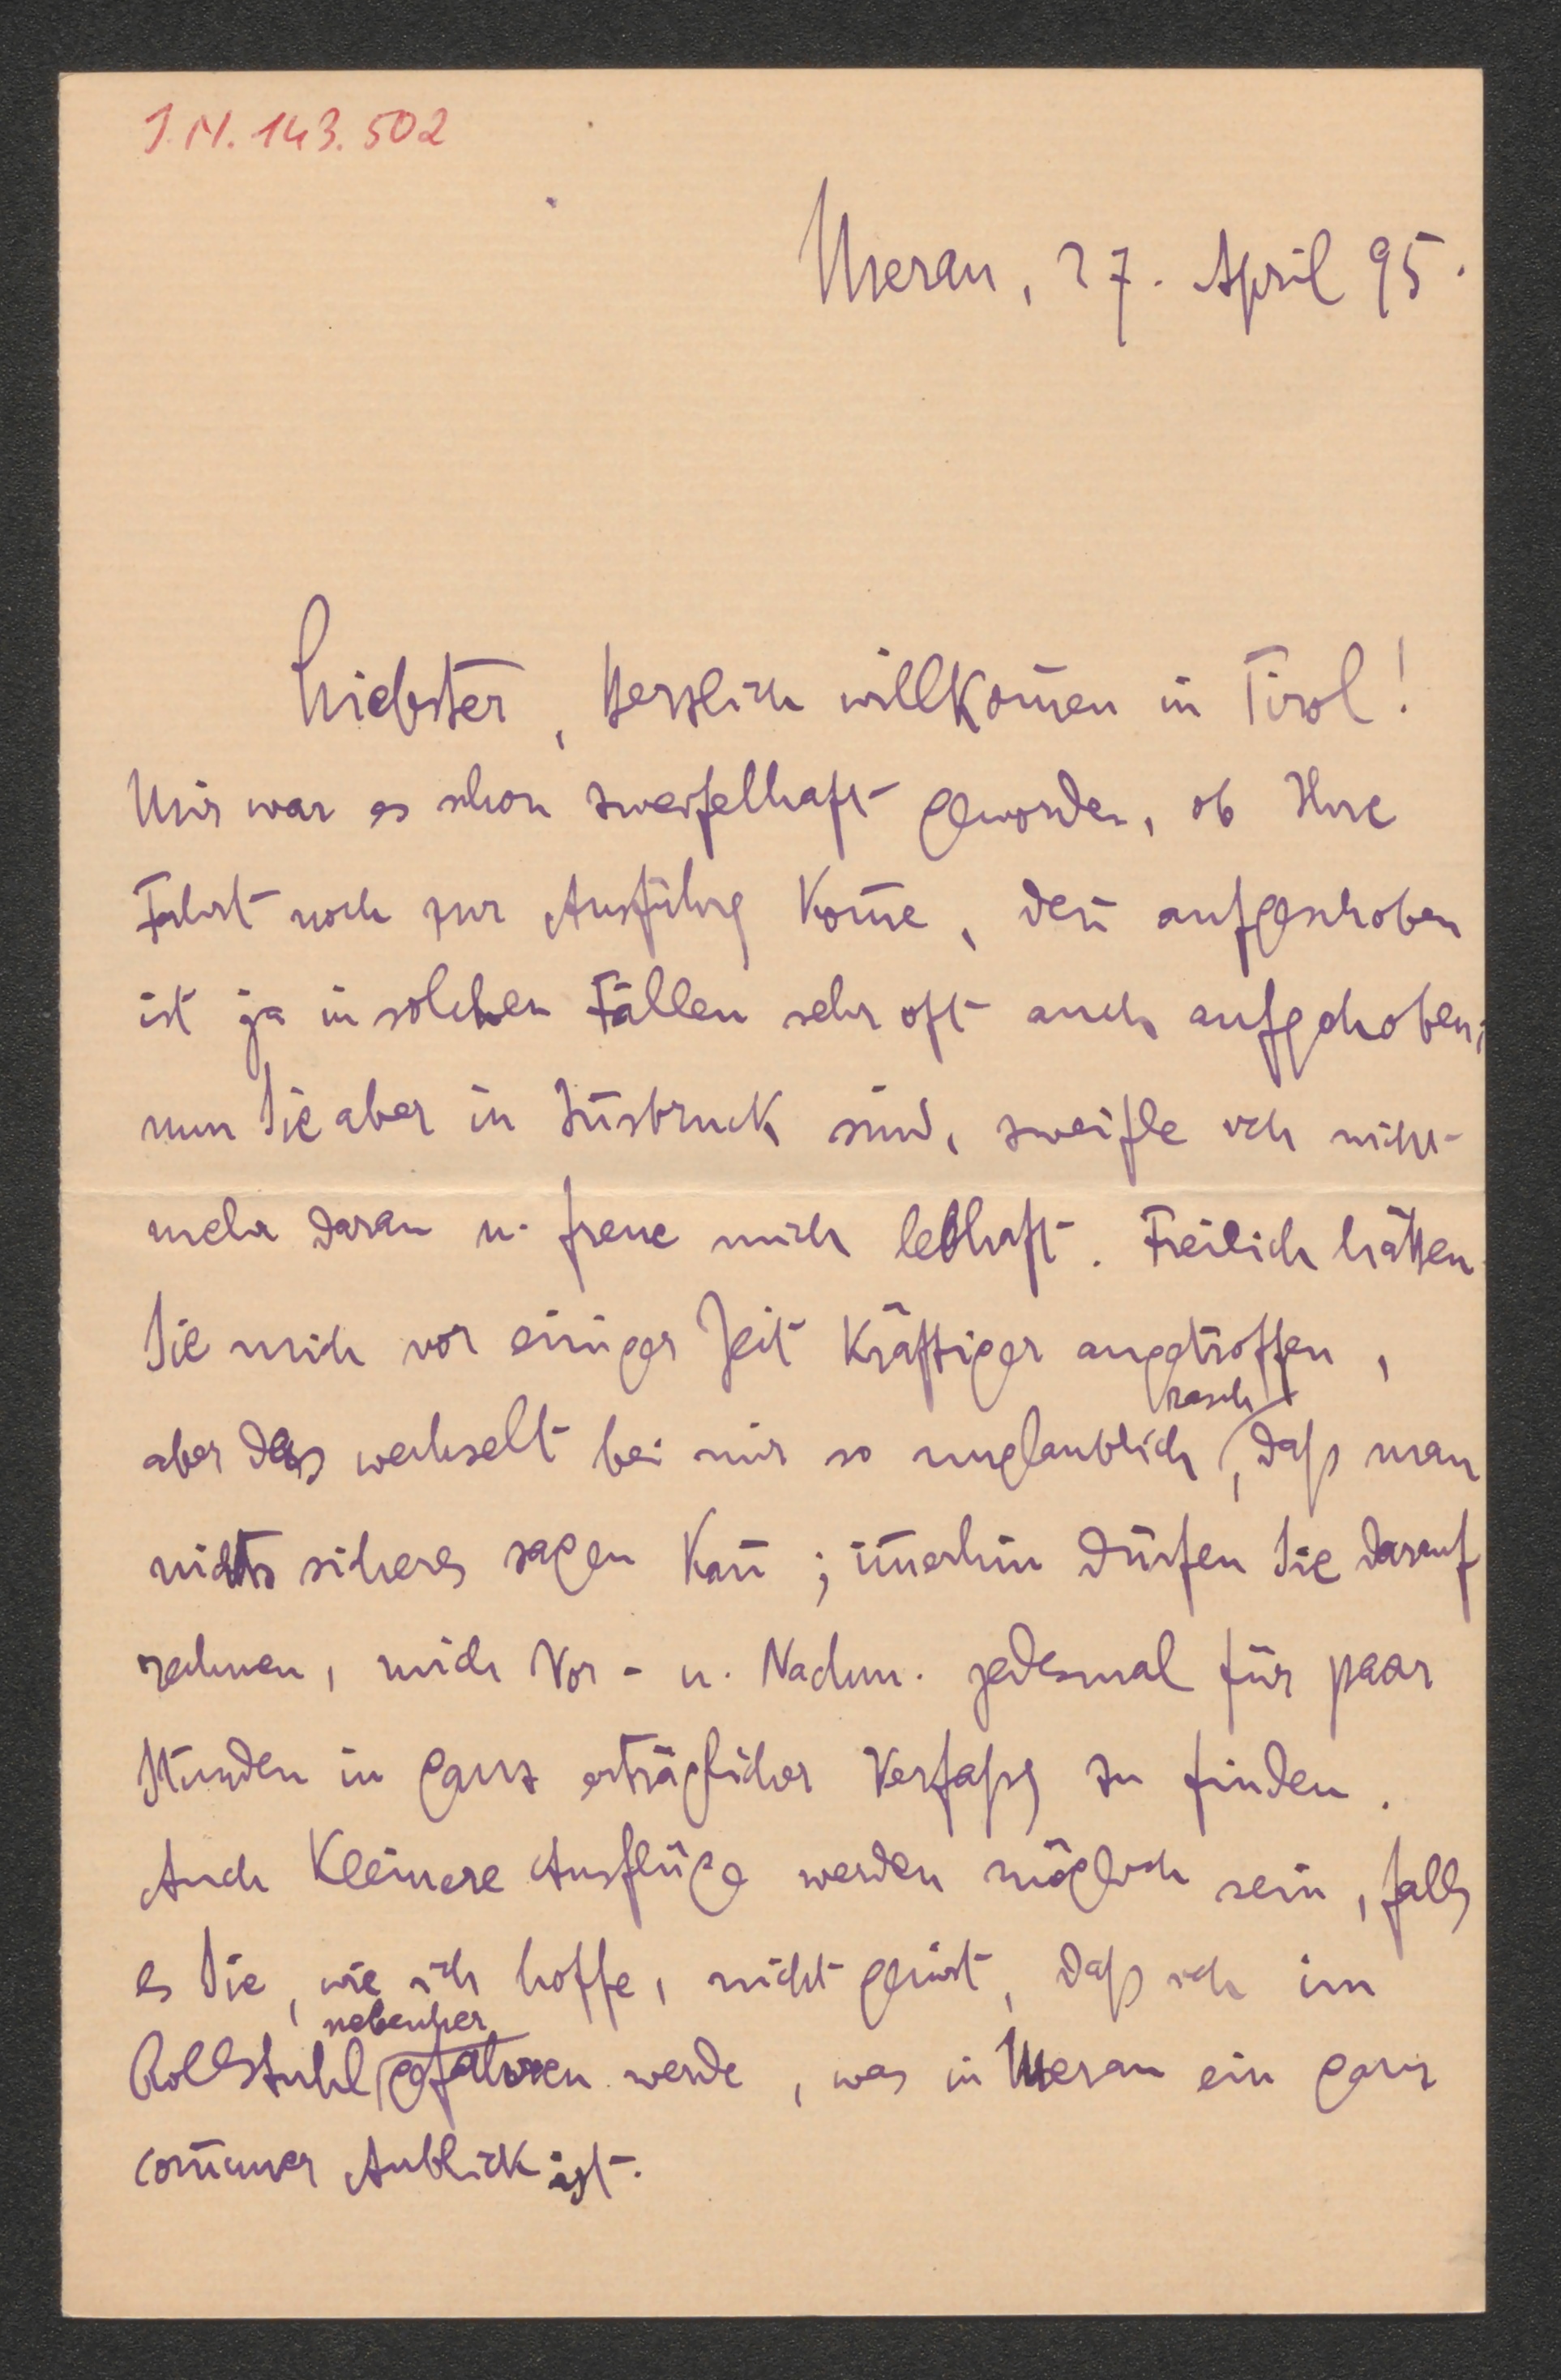 J.N. 143.502
Meran, 27. April 95.
Liebster, herzlich willkom̅en in Tirol!
Mir war es schon zweifelhaft geworden, ob Ihre
Fahrt noch zur Ausführg kom̅e, den̅ aufgeschoben
ist ja in solchen Fällen sehr oft auch aufgehoben;
nun Sie aber in In̅sbruck sind, zweifle ich nicht
mehr daran u. freue mich lebhaft. Freilich hätten
Sie mich vor einiger Zeit kräftiger angetroffen,
rasch
aber das wechselt bei mir so unglaublich, daß man
nichts sicheres sagen kan̅; im̅erhin dürfen Sie darauf
rechnen, mich Vor- u. Nachm. jedesmal für paar
Stunden in ganz erträglicher Verfaßg zu finden.
Auch kleinere Ausflüge werden möglich sein, falls
es Sie, wie ich hoffe, nicht genirt, daß ich im
nebenher
Rollstuhl gefahren werde, was in Meran ein ganz
com̅uner Anblick ist.